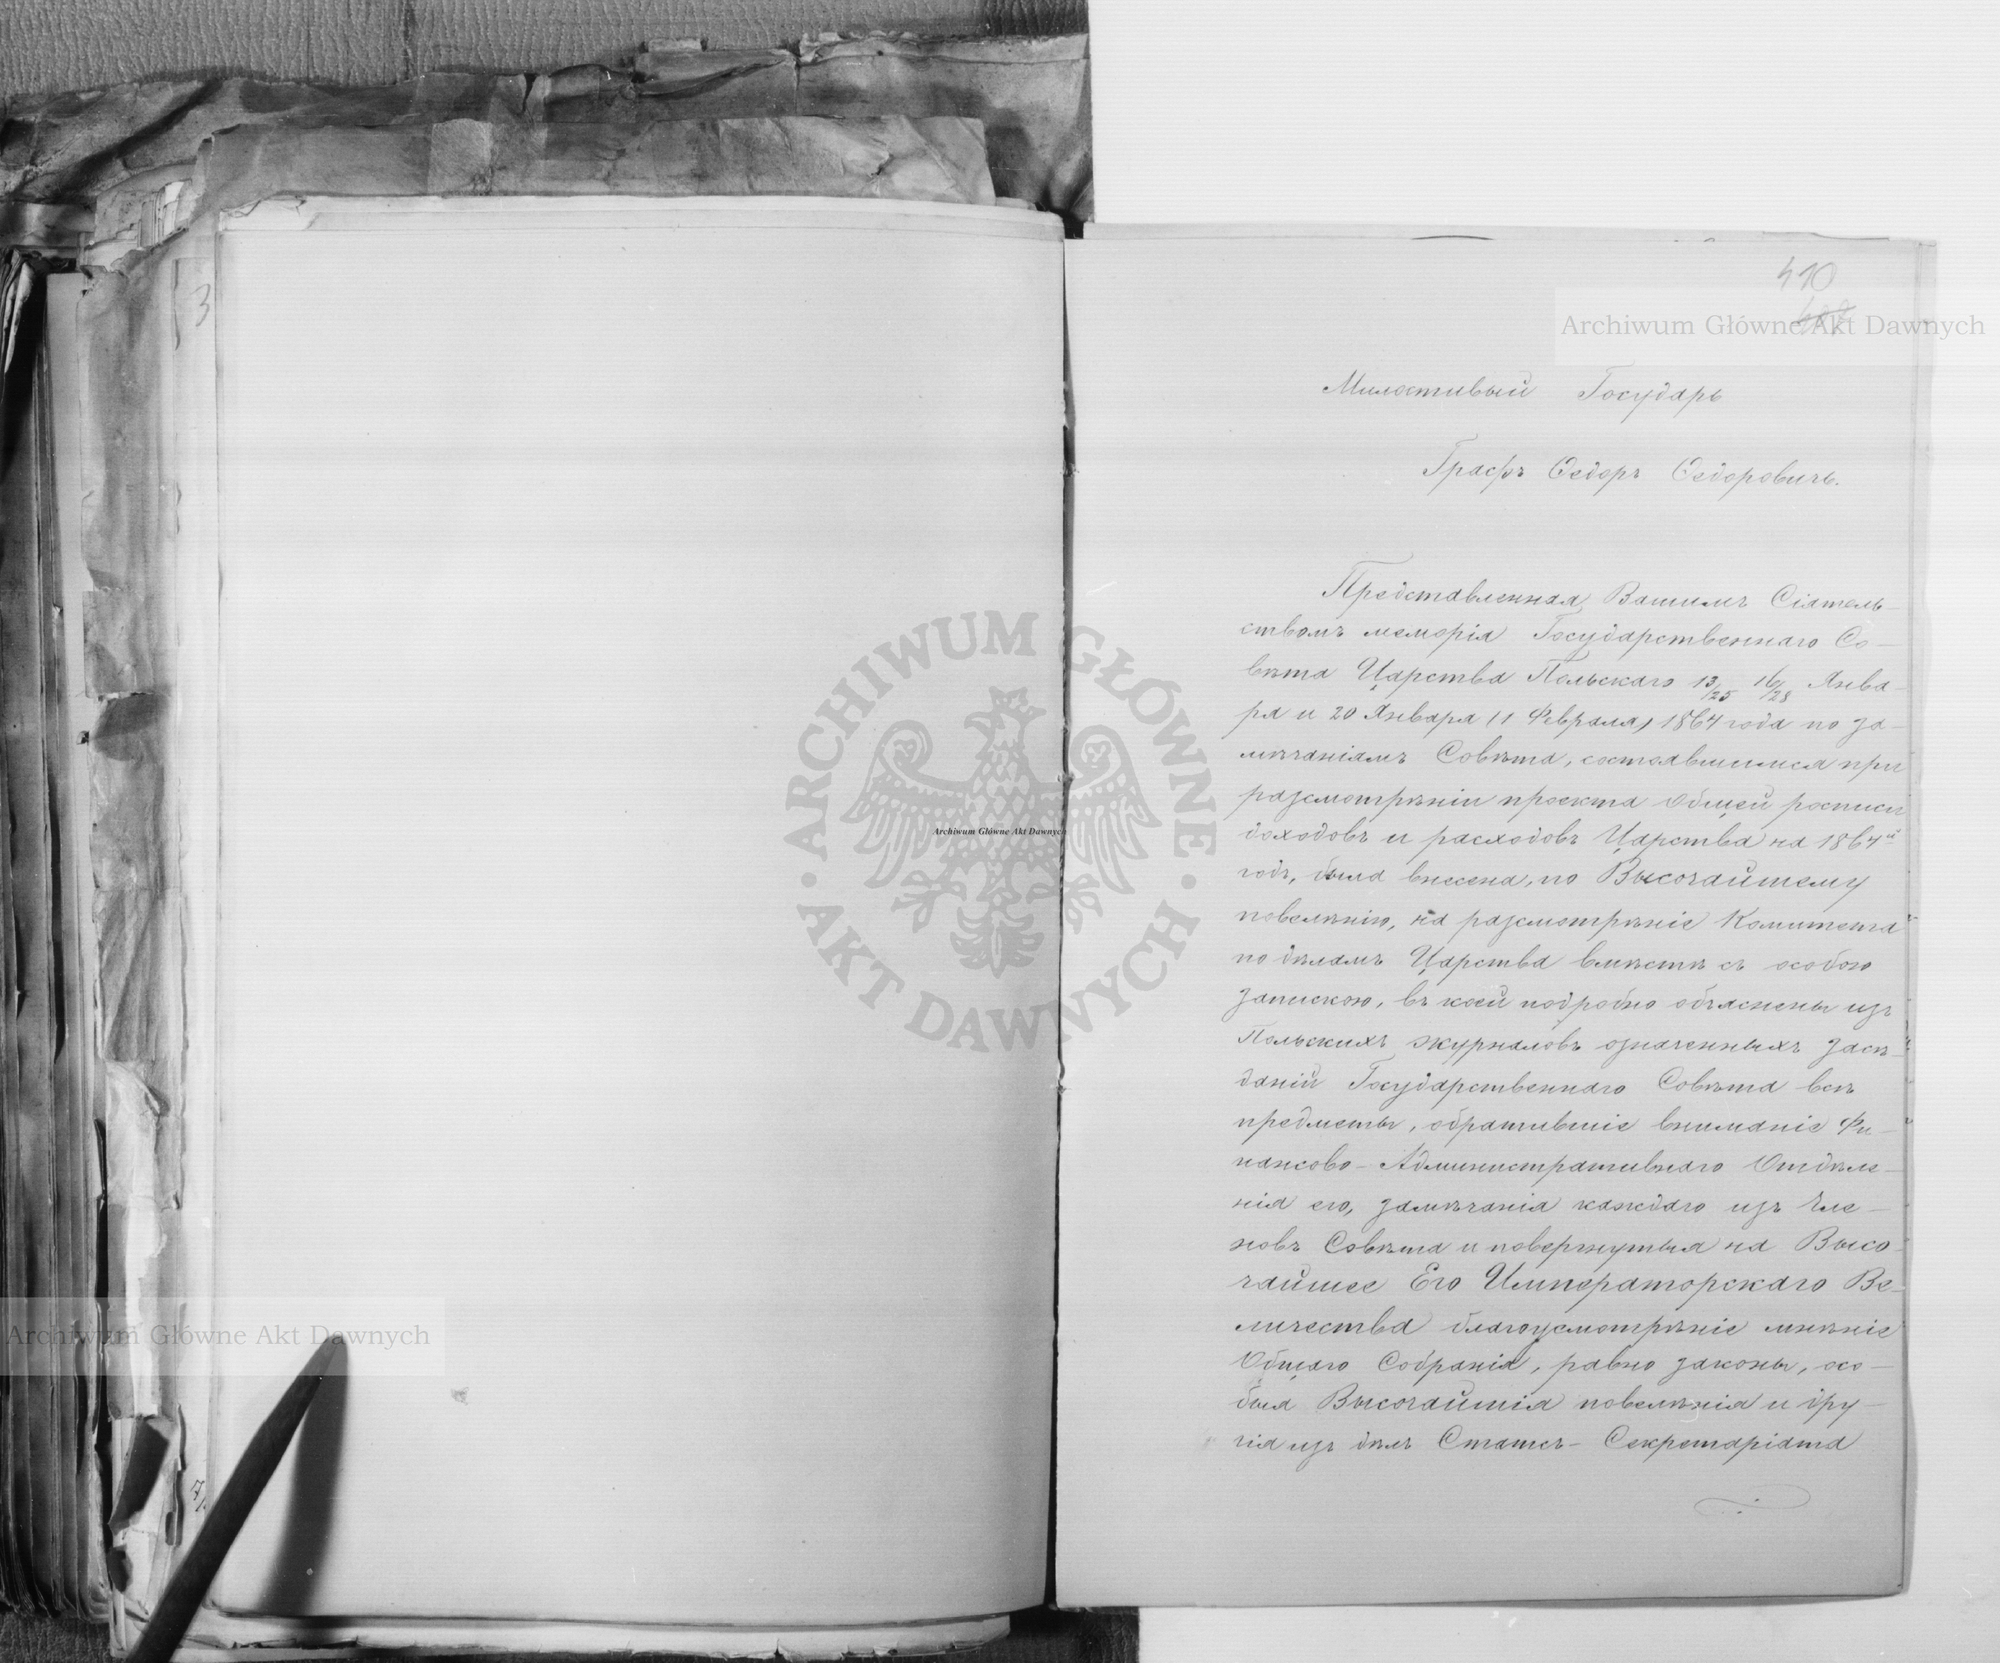 410
Archiwum Główne Akt Dawnych
Милостивый Государь
Графъ Ѳедоръ Ѳедоровичъ.
Представленная Вашимъ Сіятель-
ствомъ меморія Государственнаго Со-
вѣта Царства Польскаго 13/25 16/28 Янва-
ря и 20 Января (1 Февраля) 1864 года по за-
мѣчаніямъ Совѣта, состоявшимся при
разсмотрѣніи проекта Общей росписи
доходовъ и расходовъ Царства на 1864й
годъ, была внесена, по Высочайшему
повелѣнію, на разсмотрѣніе Комитета
по дѣламъ Царства вмѣстѣ съ особою
запискою, въ коей подробно объяснены изъ
Польскихъ журналовъ означенныхъ засѣ-
даній Государственнаго Совѣта всѣ
предметы, обратившіе вниманіе Фи-
нансово-Административнаго Отдѣле-
нія его, замѣчанія каждаго изъ Чле-
новъ Совѣта и повергнутыя на Высо-
чайшее Его Императорскаго Ве-
личества благоусмотрѣніе мнѣніе
Общаго Собранія, равно законы, осо-
быя Высочайшія повелѣнія и дру-
гія изъ дѣлъ Статсъ-Секретаріата
Archiwum Główne Akt Dawnych
Archiwum Główne Akt Dawnych
ARCHIWUM GŁÓWNE AKT DAWNYCH